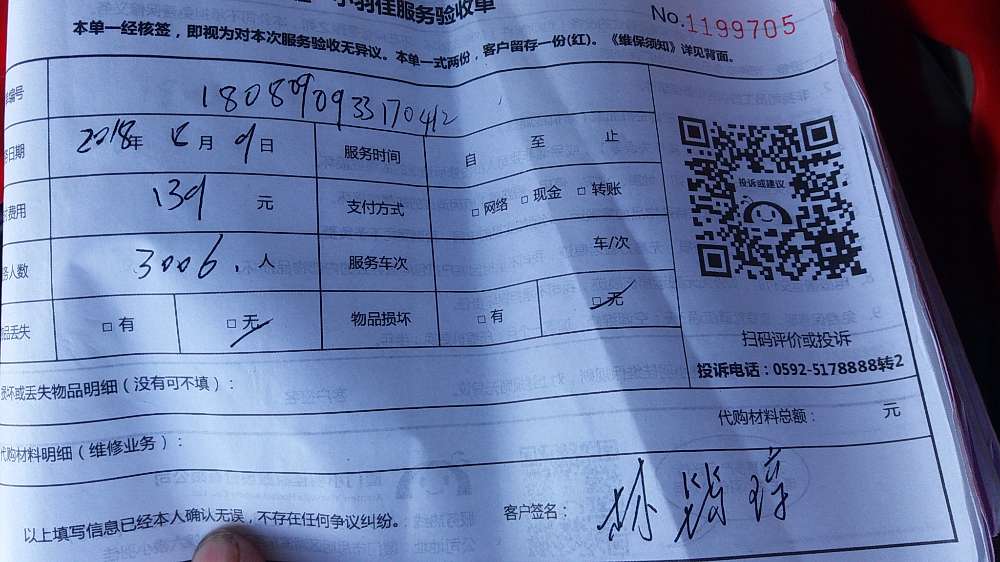 小羽佳服务验收单
No.1199705
本单一经核签，即视为对本次服务验收无异议。本单一式两份，客户留存一份(红)。《维保须知》详见背面。
编号 180890933170412
日期 2018年 月 9日 服务时间 自 至 止
费用 139 元 支付方式 □网络 □现金 □转账
人数 3006. 人 服务车次 车/次
品丢失 □有 □无 物品损坏 □有 □无
投诉或建议
扫码评价或投诉
投诉电话：0592-5178888转2
损坏或丢失物品明细（没有可不填）：
代购材料总额： 元
代购材料明细（维修业务）：
以上填写信息已经本人确认无误，不存在任何争议纠纷。
客户签名： 林